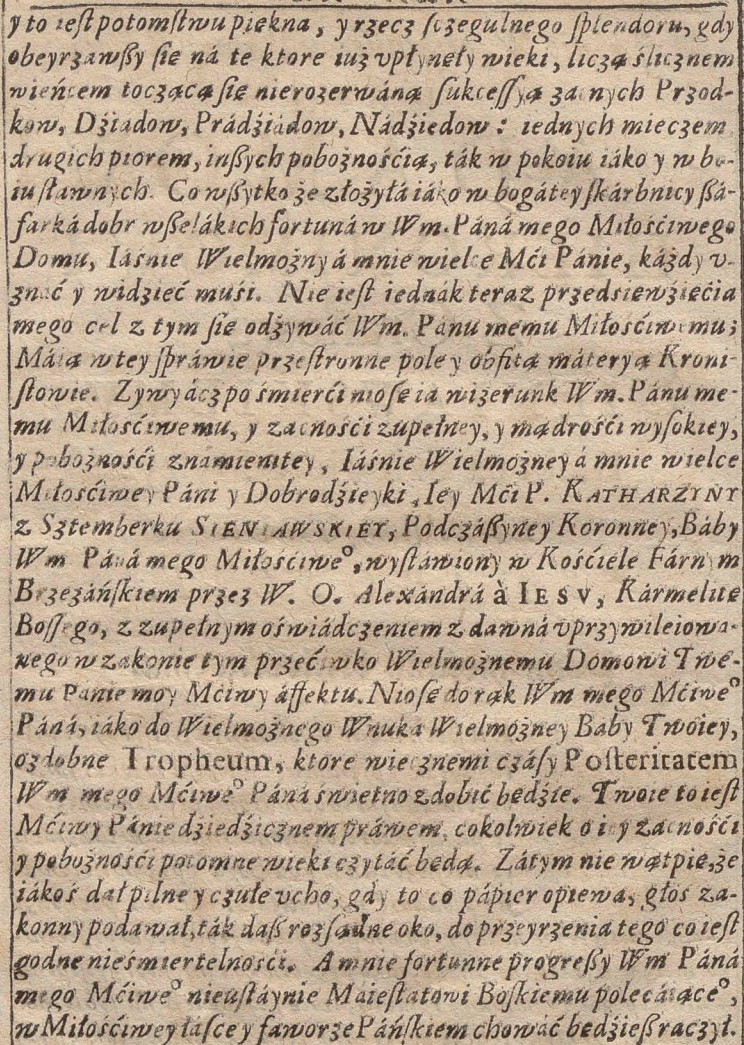 y to iest potomstwu piękna, y rzecz sczegulnego splendoru, gdy
obeyrzawßy się ná te ktore iuż vpłynęły wieki, liczą ślicznem
wieńcem toczącą się nierozerwáną sukcessyą zacnych Przod-
kow, Dźiadow, Prádźiádow, Nádźiedow: iednych mieczem
drugich piorem, inßych pobożnośćią, ták w pokoiu iáko y w bo-
iu sławnych. Co wßytko że złożyłá iáko w bogátey skárbnicy ßá-
fárká dobr wßelákich fortuná w Wm. Páná mego Miłośćiwego
Domu, Iáśnie Wielmożny á mnie wielce Mći Pánie, káżdy v-
znáć y widzieć muśi. Nie iest iednák teraz przedsięwźięcia
mego cel z tym się odżywáć Wm. Pánu memu Miłośćiwemu;
Máią w tey spráwie przestronne pole y obfitą máteryą Kroni-
stowie. Zywy ácz po śmierći niosę ia wizerunk Wm. Pánu me-
mu Miłosćiwemu, y zacnośći zupełney, y mądrośći wysokiey,
y pobożnośći znamienitey, Iáśnie Wielmożney á mnie wielce
Miłosćiwey Páni y Dobrodźieyki, Iey Mći P. KATHARZYNY
z Sztemberku SIENIAWSKIEY, Podczáßyney Koronney, Báby
Wm Páná mego Miłośćiwe°, wystáwiony w Kośćiele Fárnym
Brzezáńskiem przez W. O. Alexándrá à IESV, Kármelitę
Bossego, z zupełnym oświádczeniem z dawná vprzywileiowa-
nego w zakonie tym przećiwko Wielmożnemu Domowi Twe-
mu Pánie moy Mćiwy áffektu. Niosę do rąk Wm mego Mćiwe°
Páná, iáko do Wielmożnego Wnuka Wielmożney Baby Twoiey,
ozdobne Tropheum, ktore wiecznemi czásy Posteritatem
Wm mego Mćiwe° Páná świetno zdobić będźie. Twoie to iest
Mćiwy Pánie dźiedźicznem práwem, cokolwiek o iey zacnośći
y pobożnośći potomne wieki czytáć będą. Zátym nie wątpię, że
iákoś dał pilne y czułe vcho, gdy to co pápier opiewa, głos za-
konny podawał, ták daß rozsądne oko, do przeyrzenia tego co iest
godne nieśmiertelnośći. A mnie fortunne progreßy Wm Páná
mego Mćiwe° nieustáynie Maiestatowi Boskiemu polecáiące°,
w Miłośćiwey łásce y faworze Páńskiem chowáć będźieß raczył.